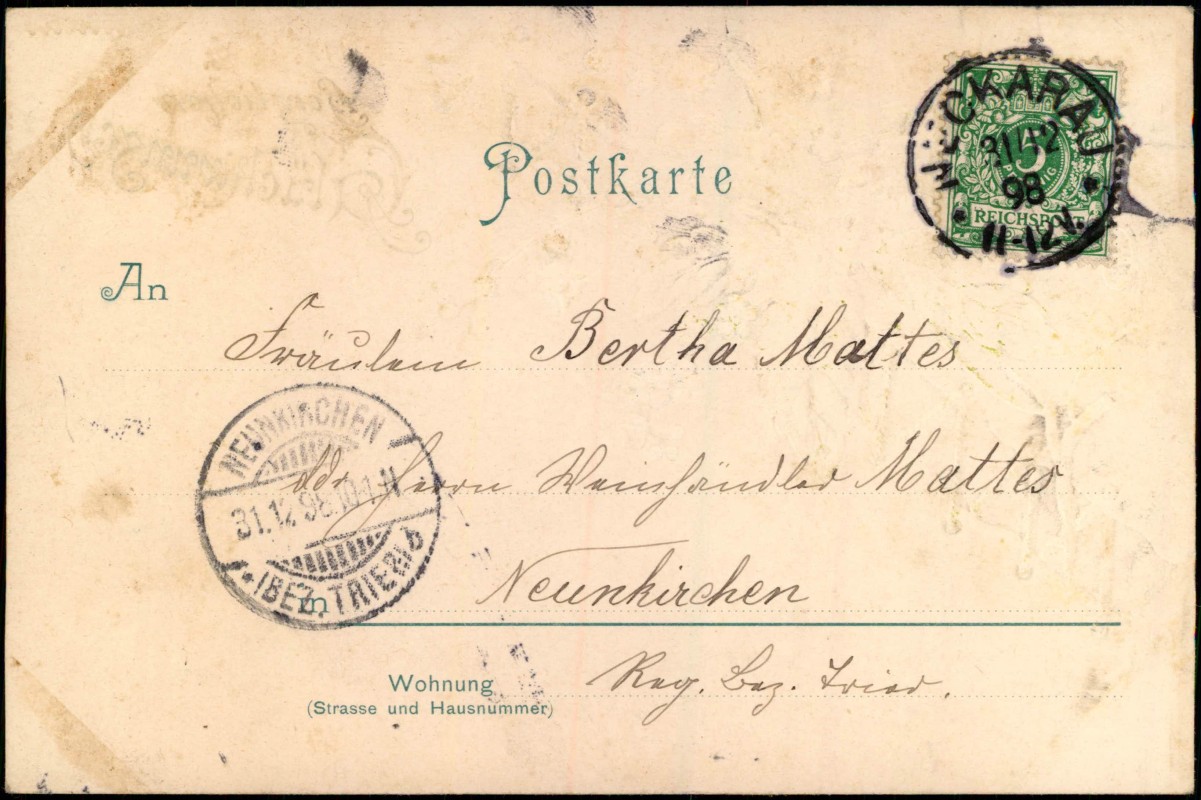 Postkarte
NECKARAU
31 12
98
11-12V.
5
REICHSPOST
An
Fräulein Bertha Mattes
Herrn Weinhändler Mattes
NEUNKIRCHEN
31.12.98
(BEZ. TRIER) b
in Neunkirchen
Reg. Bez. Trier.
Wohnung
(Strasse und Hausnummer)